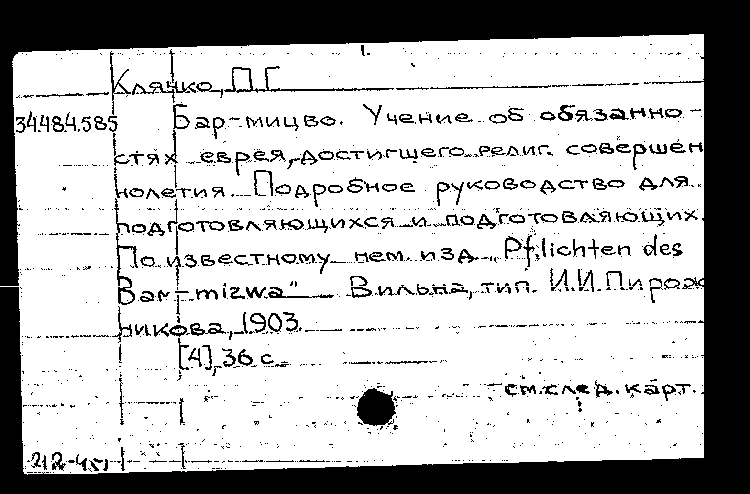 Клячко, П.Г
34.484.585 Бар-мицво. Учение об обязанно-
стях еврея, достигшего религ. совершен
нолетия. Подробное руководство для
подготовляющихся и подготовляющих.
По известному нем. изд. „Pflichten des
Bar-mizwa" Вильна, тип. И.И.Пирож
никова, 1903.
[4], 36 с.
см. след. карт.
212-451